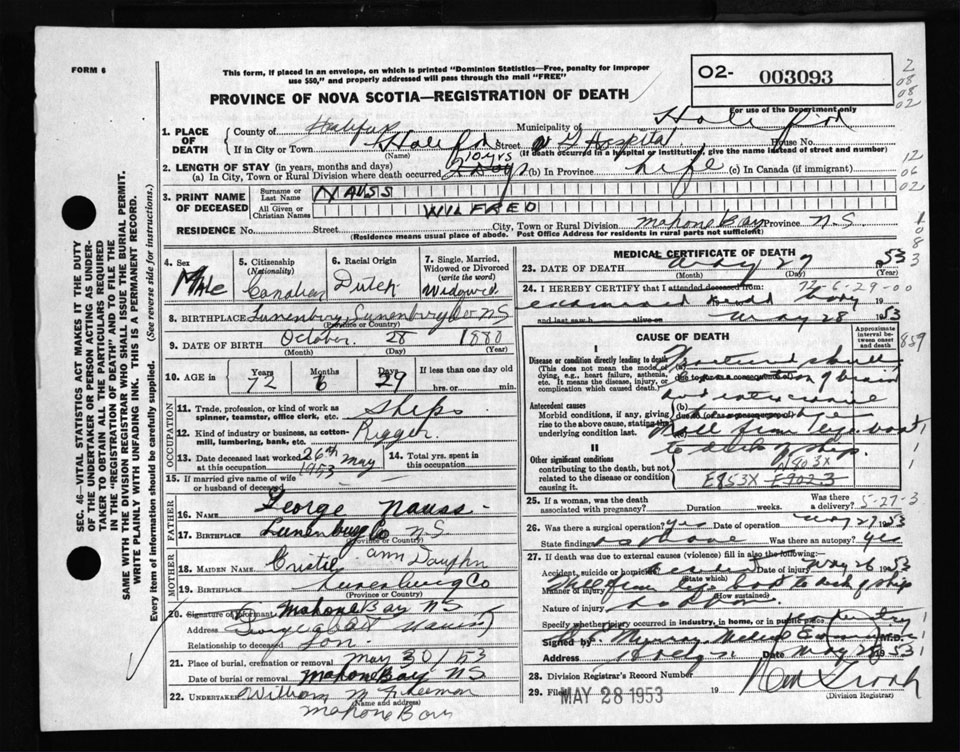 FORM 6
This form, if placed in an envelope, on which is printed "Dominion Statistics—Free, penalty for improper
use $50," and properly addressed will pass through the mail "FREE"
PROVINCE OF NOVA SCOTIA—REGISTRATION OF DEATH
O2- 003093
For use of the Department only
2
08
08
02
12
06
02
SEC. 46—VITAL STATISTICS ACT MAKES IT THE DUTY
OF THE UNDERTAKER OR PERSON ACTING AS UNDER-
TAKER TO OBTAIN ALL THE PARTICULARS REQUIRED
IN THE "REGISTRATION OF DEATH" AND TO FILE THE
SAME WITH THE DIVISION REGISTRAR WHO SHALL ISSUE THE BURIAL PERMIT.
WRITE PLAINLY WITH UNFADING INK. THIS IS A PERMANENT RECORD.
Every item of information should be carefully supplied. (See reverse side for instructions.)
1. PLACE OF DEATH
County of Halifax Municipality of Halifax
If in City or Town Halifax Street V G Hospital House No.
(Name) (If death occurred in a hospital or institution, give the name instead of street and number)
2. LENGTH OF STAY (in years, months and days)
(a) In City, Town or Rural Division where death occurred 2 Days (b) In Province life (c) In Canada (if immigrant)
3. PRINT NAME OF DECEASED
Surname or Last Name NAUSS
All Given or Christian Names WILFRED
RESIDENCE No. Street City, Town or Rural Division Mahone Bay Province N.S.
(Residence means usual place of abode. Post Office Address for residents in rural parts not sufficient)
4. Sex Male
5. Citizenship (Nationality) Canadian
6. Racial Origin Dutch
7. Single, Married, Widowed or Divorced (write the word) Widowed
8. BIRTHPLACE Lunenburg Lunenburg Co NS
(Province or Country)
9. DATE OF BIRTH October 28 1880
(Month) (Day) (Year)
10. AGE in Years Months Days If less than one day old
72 6 29 hrs. or min.
OCCUPATION
11. Trade, profession, or kind of work as spinner, teamster, office clerk, etc. Ships
12. Kind of industry or business, as cotton-mill, lumbering, bank, etc. Rigger
13. Date deceased last worked at this occupation 26th May 1953
14. Total yrs. spent in this occupation
15. If married give name of wife or husband of deceased
FATHER
16. Name George Nauss
17. Birthplace Lunenburg Co NS
(Province or Country)
MOTHER
18. MAIDEN NAME Ann
19. BIRTHPLACE Lunenburg Co
(Province or Country)
20. Signature of Informant Mahone Bay NS
Address Nauss
Relationship to deceased Son
21. Place of burial, cremation or removal May 30/53
Date of burial or removal Mahone Bay NS
22. UNDERTAKER William M Freeman
(Name and address)
Mahone Bay
MEDICAL CERTIFICATE OF DEATH
23. DATE OF DEATH May 27 1953
(Month) (Day) (Year)
24. I HEREBY CERTIFY that I attended deceased from:
examined dead body 19
and last saw h alive on May 28 1953
CAUSE OF DEATH
Approximate interval between onset and death
I
Disease or condition directly leading to death
(This does not mean the mode of dying, e.g., heart failure, asthenia, etc. It means the disease, injury, or complication which caused death.)
Fractured skull
due to
Antecedent causes
Morbid conditions, if any, giving rise to the above cause, stating the underlying condition last.
(b)
Fall from lifeboat
to deck of ship.
II
Other significant conditions
contributing to the death, but not related to the disease or condition causing it
N803X
E853X E902.3
25. If a woman, was the death associated with pregnancy? Duration weeks. Was there a delivery? 5-27-3
26. Was there a surgical operation? yes Date of operation May 27 1953
State findings as above Was there an autopsy? yes
27. If death was due to external causes (violence) fill in also the following:
Accident, suicide or homicide? Accident Date of injury May 26 1953
(State which)
Manner of injury Fell from life boat to deck of ship
(How sustained)
Nature of injury as above
Specify whether injury occurred in industry, in home, or in public place Industry
Signed by M.D.
Address Halifax Date May 28 1953
28. Division Registrar's Record Number
29. Filed MAY 28 1953 19
(Division Registrar)